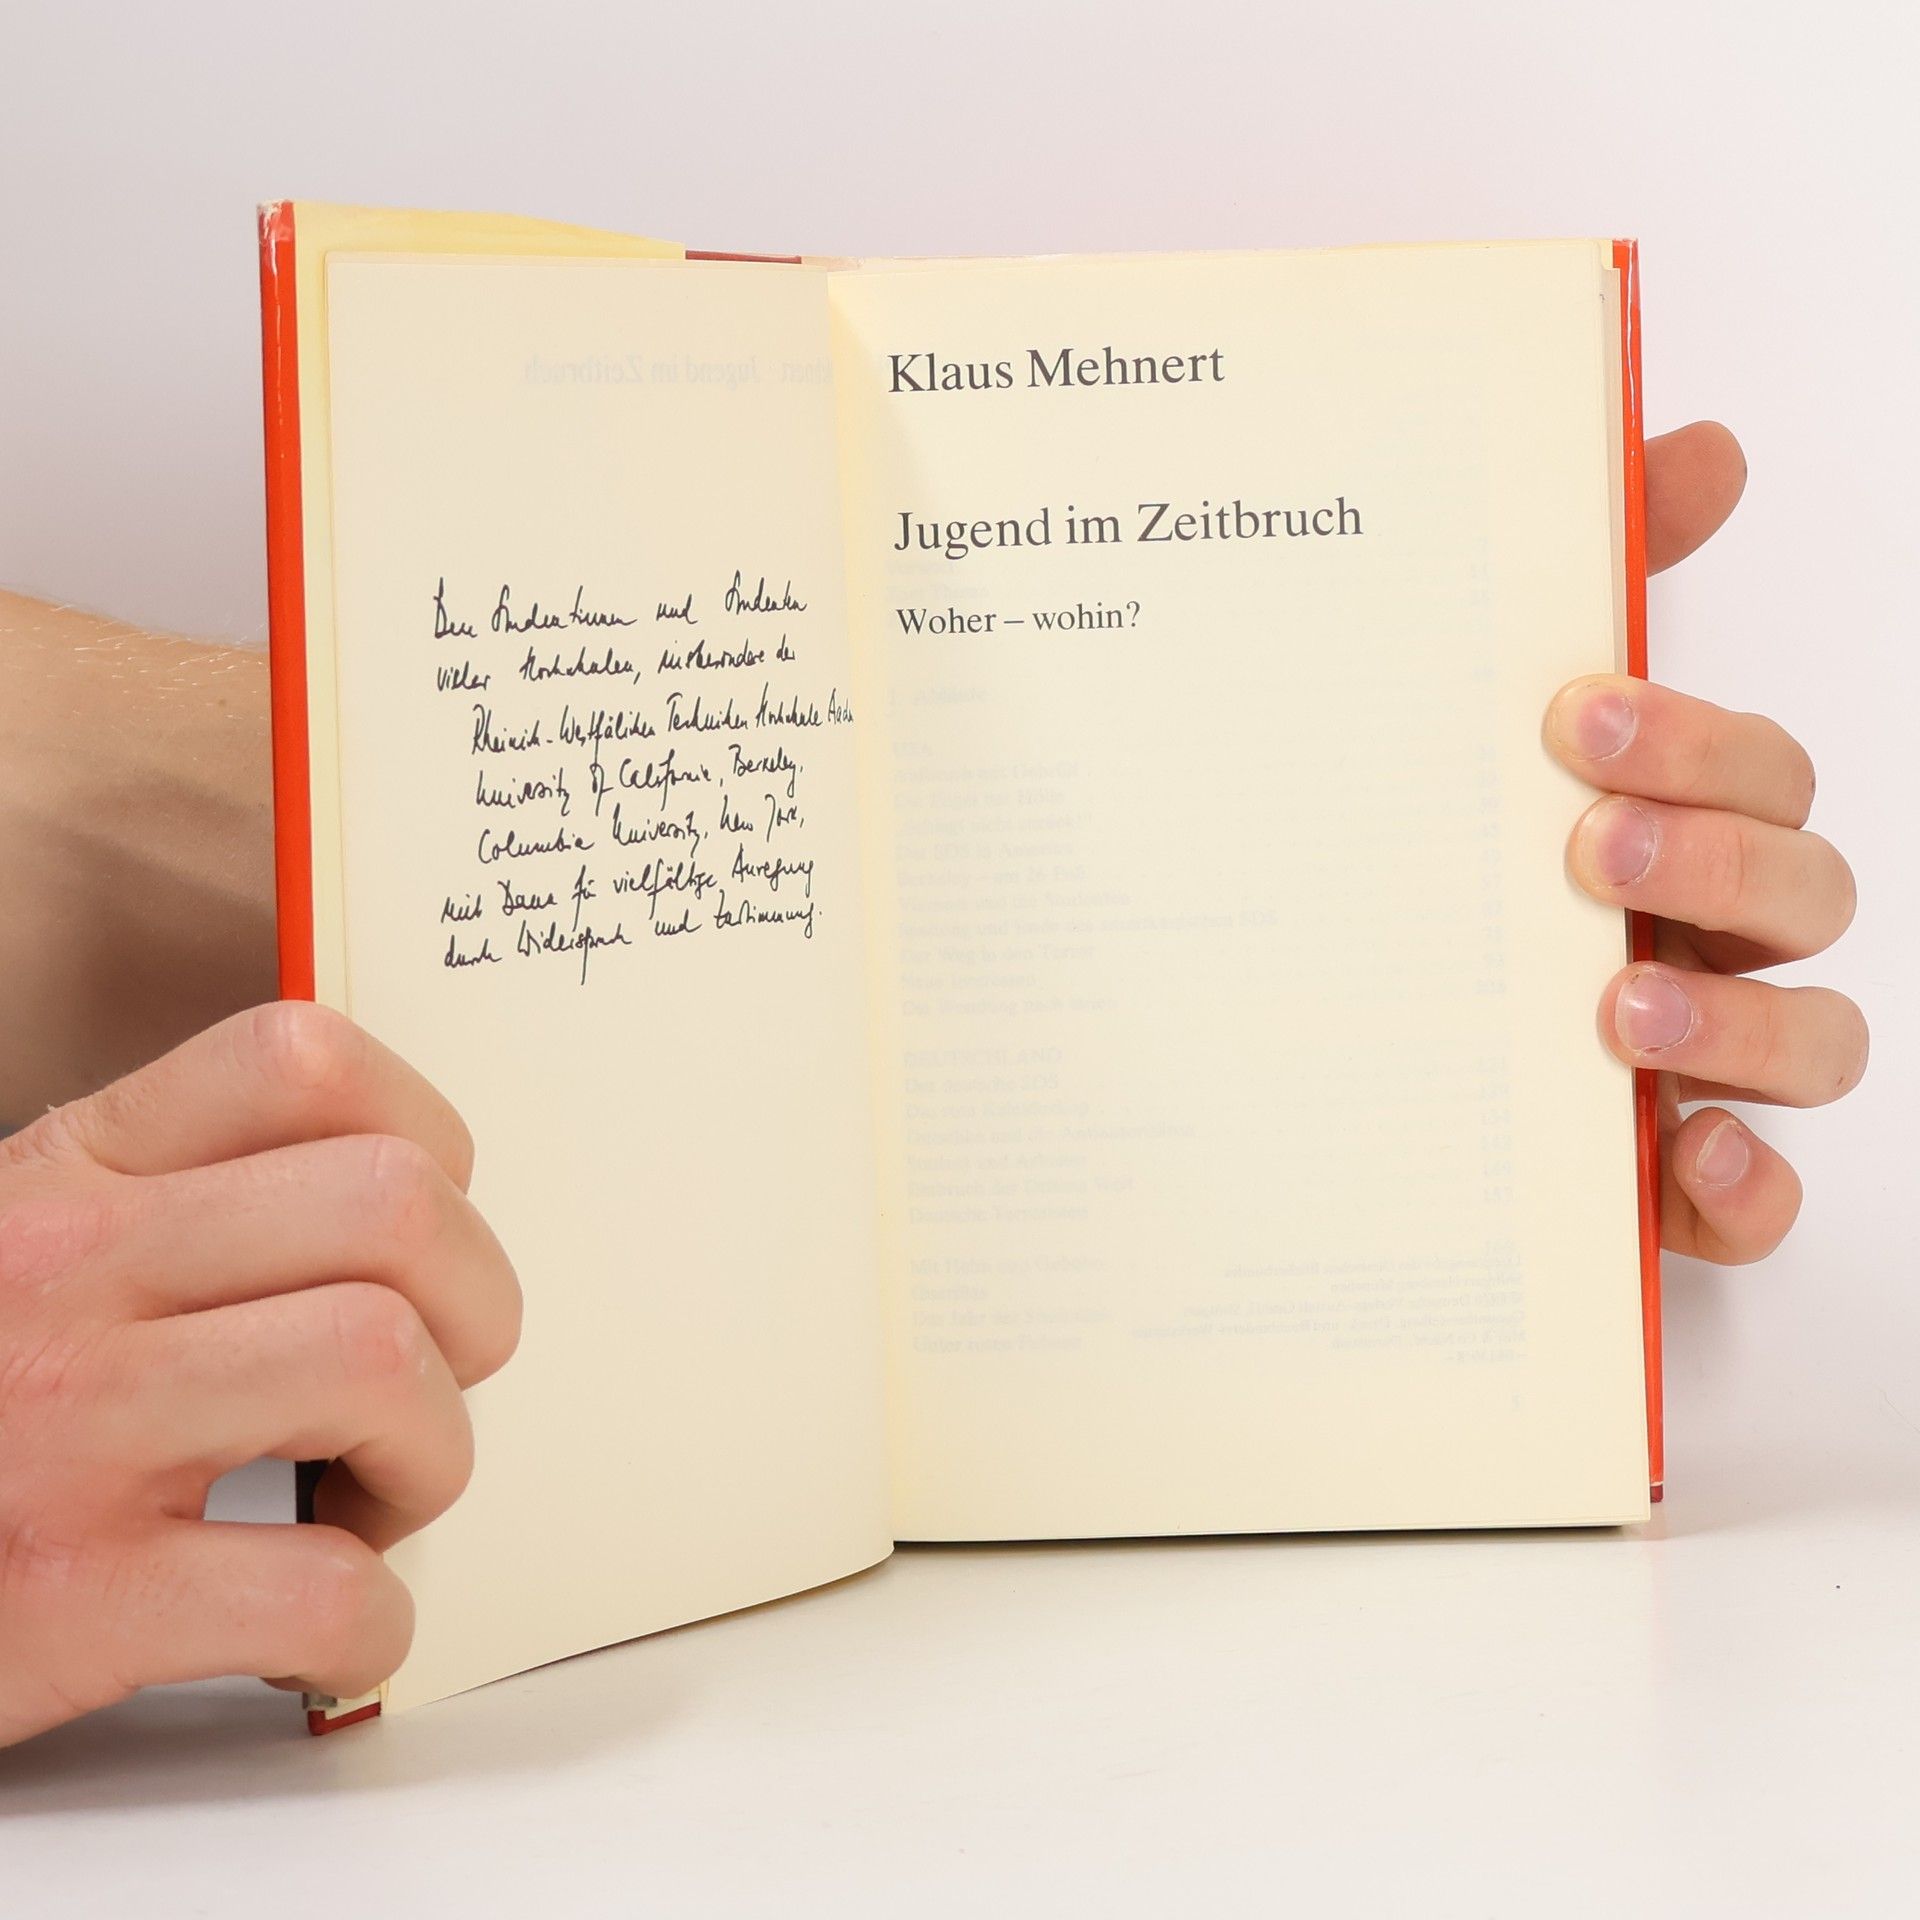 Den Studentinnen und Studenten
vieler Hochschulen, insbesondere der
Rheinisch-Westfälischen Technischen Hochschule Aachen
University of California, Berkeley,
Columbia University, New York,
mit Dank für vielfältige Anregung
durch Widerspruch und Zustimmung.
Klaus Mehnert
Jugend im Zeitbruch
Woher – wohin?